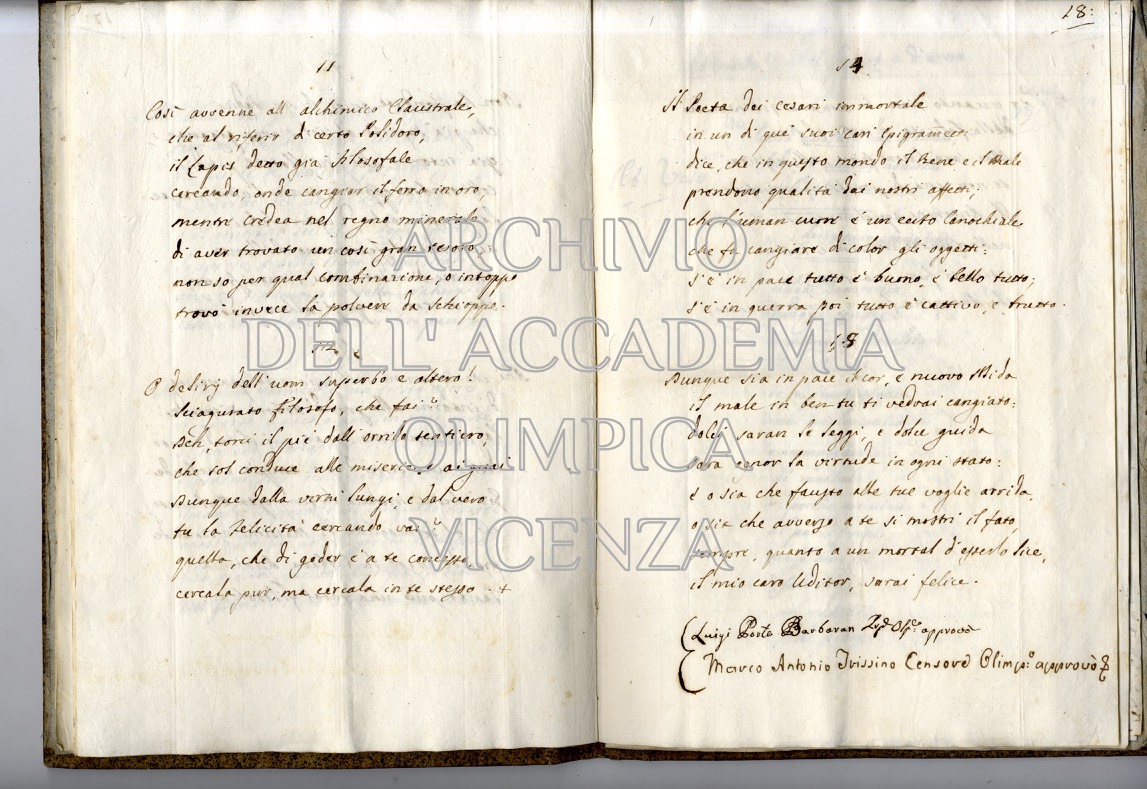 11
Così avvenne all' alchimico Claustrale,
che al riferir di certo Polidoro,
il Lapis detto già filosofale
cercando, onde cangiar il ferro in oro,
mentre credea nel regno minerale
di aver trovato un così gran tesoro,
non so per qual combinazione, o intoppo
trovò invece la polvere da schioppo.
12
O desirj dell' uom superbo e altero!
Sciagurato filosofo, che fai?
Deh, torci il piè dall' orrido sentiero,
che sol conduce alle miserie, e ai guai
Dunque dalla virtù lungi, e dal vero
tu la felicità cercando vai?
quella, che di goder è a te concesso,
cercala pur, ma cercala in te stesso. +
18:
14
Il Poeta dei cesari immortale
in un di que' suoi cari Epigrammi
dice, che in questo mondo il Bene e il Male
prendono qualità dai nostri affetti;
che l'uman cuore è un certo Canochiale
che fa cangiare di color gli oggetti:
s'è in pace tutto è buono, è bello tutto;
s'è in guerra poi tutto è cattivo, e brutto.
18
Dunque sia in pace il cor, e nuovo Mida
il male in ben tu ti vedrai cangiato:
dolci saran le leggi, e dolce guida
sarà ognor la virtude in ogni stato:
e o sia che fausto alle tue voglie arrida,
o sia che avverso a te si mostri il fato,
sempre, quanto a un mortal d'esserlo lice,
il mio caro Uditor, sarai felice.
Luigi Porto Barbaran approvò
Marco Antonio Trissino Censore Olimp:º approvò
ARCHIVIO
DELL' ACCADEMIA
OLIMPICA
VICENZA